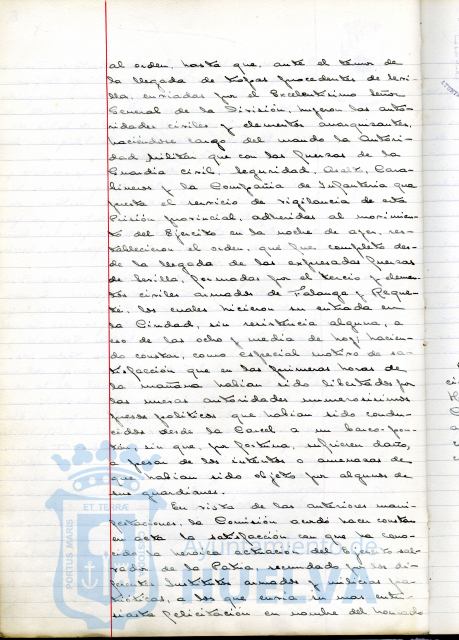 al orden, hasta que, ante el temor de
la llegada de tropas procedentes de Sevi-
lla, enviadas por el Excelentísimo Señor
General de la División, huyeron las auto-
ridades civiles y elementos anarquizantes,
haciéndose cargo del mando la Autori-
dad Militar que con las fuerzas de la
Guardia civil, Seguridad, Asalto, Cara-
bineros y la Compañía de Infantería que
presta el servicio de vigilancia de esta
Prisión provincial, adheridas al movimien-
to del Ejército en la noche de ayer, res-
tablecieron el orden, que fue completo des-
de la llegada de las expresadas fuerzas
de Sevilla, formadas por el tercio y elemen-
tos civiles armados de Falange y Reque-
té, los cuales hicieron su entrada en
la Ciudad, sin resistencia alguna, a
eso de las ocho y media de hoy; hacien-
do constar, como especial motivo de sa-
tisfacción que en las primeras horas de
la mañana habían sido libertados por
las nuevas autoridades numerosísimos
presos políticos que habían sido condu-
cidos desde la Carcel a un barco-pon-
tón, sin que, por fortuna, sufrieran daño,
a pesar de los intentos o amenazas de
que habían sido objeto por algunos de
sus guardianes.
En vista de las anteriores mani-
festaciones, la Comisión acordó hacer constar
en acta la satisfacción con que ha cono-
cido la heroica actuación del Ejército sal-
vador de la Patria secundado por los di-
ferentes Institutos armados y milicias pa-
trióticas, a los que envía su mas entu-
siasta felicitación en nombre del honrado
PORTUS MARIS ET TERRAE
Ayuntamiento de
HUELVA